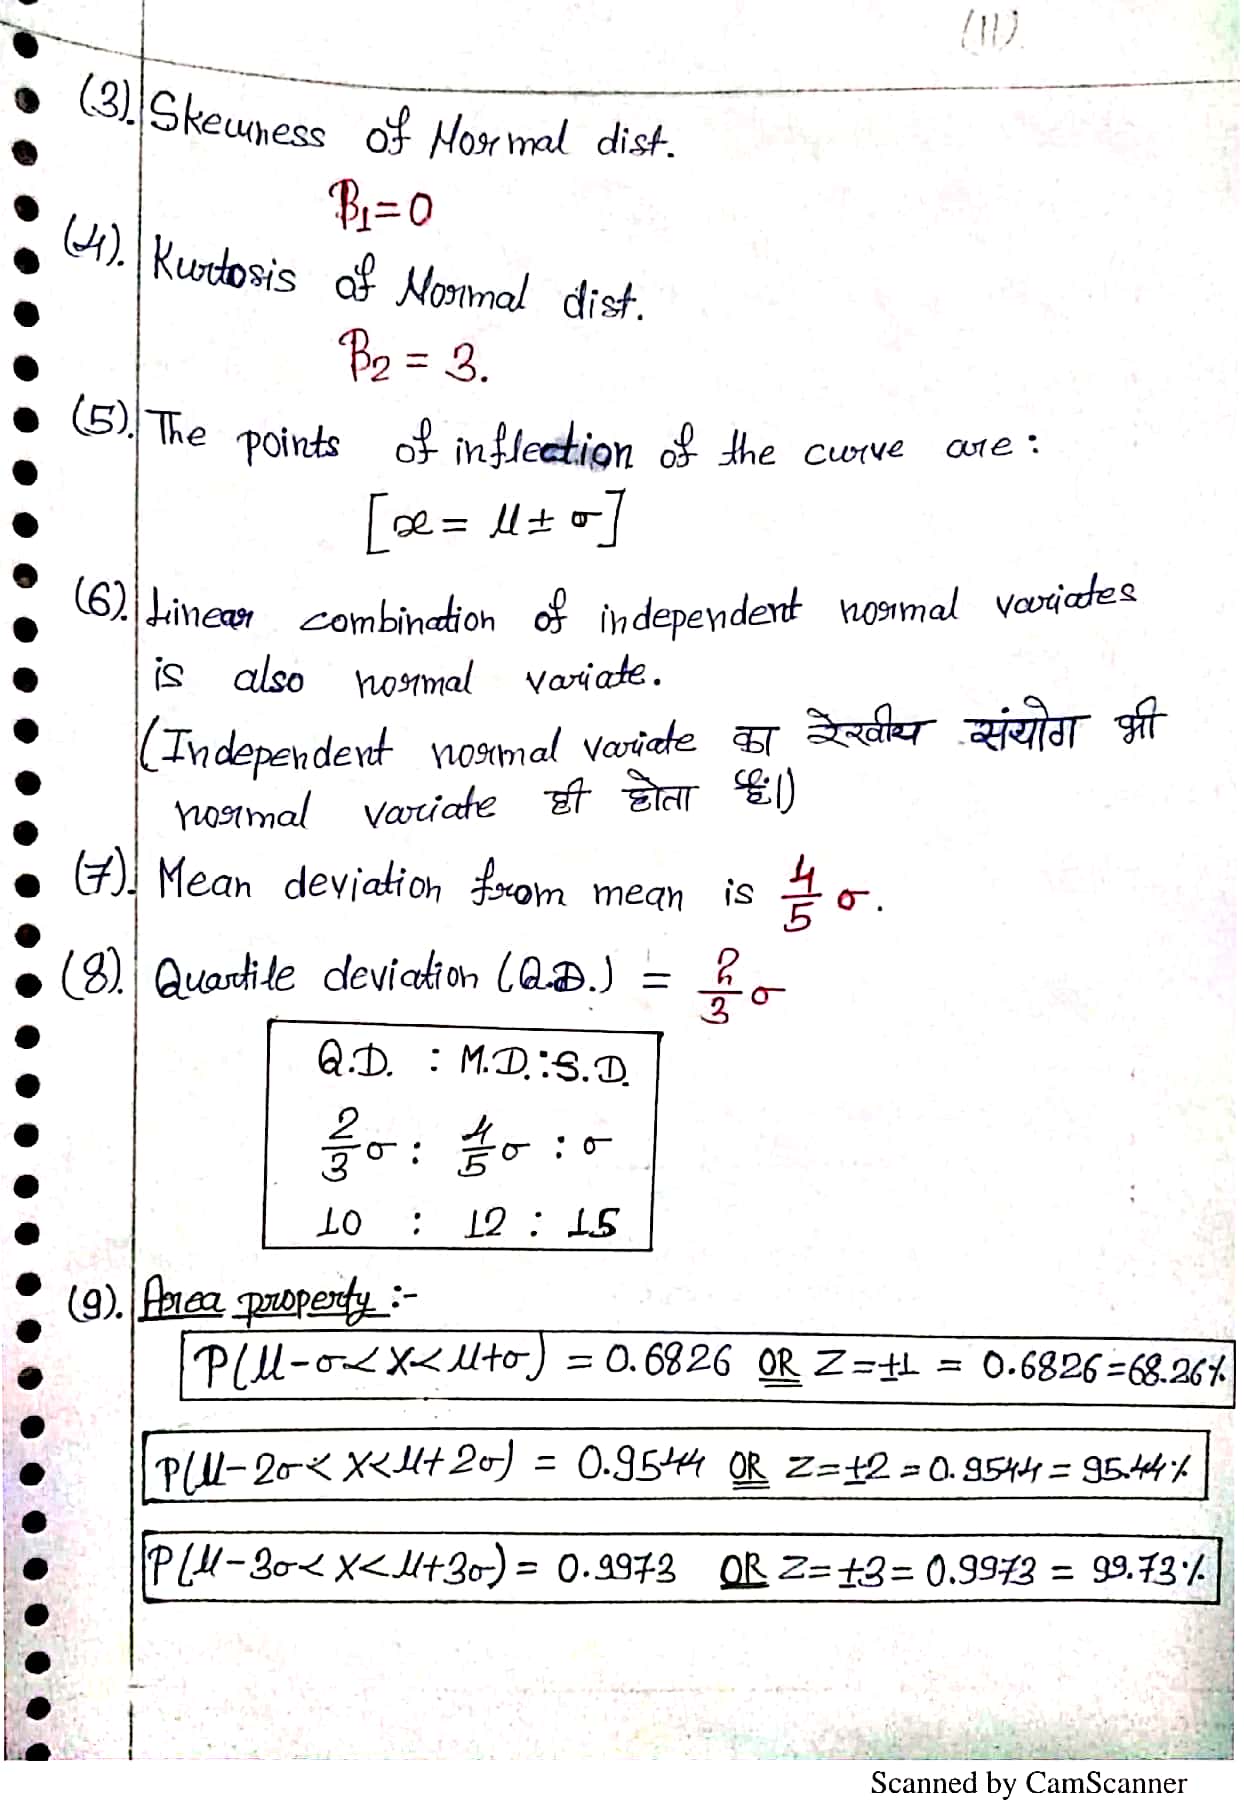 (11)
(3). Skewness of Normal dist.
β₁=0
(4). Kurtosis of Normal dist.
β₂ = 3.
(5). The points of inflection of the curve are :
[x = μ ± σ]
(6). Linear combination of independent normal variates
is also normal variate.
(Independent normal variate का रेखीय संयोग भी
normal variate ही होता है।)
(7). Mean deviation from mean is 4/5 σ.
(8). Quartile deviation (Q.D.) = 2/3 σ
Q.D. : M.D. : S.D.
2/3 σ : 4/5 σ : σ
10 : 12 : 15
(9). Area property :-
P(μ-σ< X< μ+σ) = 0.6826 OR Z=±1 = 0.6826=68.26%
P(μ-2σ< X< μ+2σ) = 0.9544 OR Z=±2 = 0.9544 = 95.44%
P(μ-3σ< X< μ+3σ) = 0.9973 OR Z=±3 = 0.9973 = 99.73%
Scanned by CamScanner